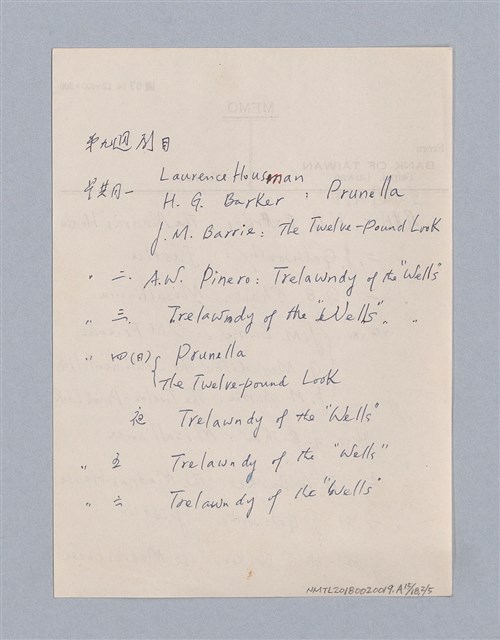 第九週劇目
星其月一
Laurence Housman
H. G. Barker : Prunella
J. M. Barrie : The Twelve-Pound Look
〃 二. A.W. Pinero : Trelawndy of the "Wells"
〃 三. Trelawndy of the "Wells" 〃 〃
〃 四(日) Prunella
The Twelve-pound Look
夜 Trelawndy of the "Wells"
〃 五 Trelawndy of the "Wells"
〃 六 Trelawndy of the "Wells"
MEMO
BANK OF TAIWAN